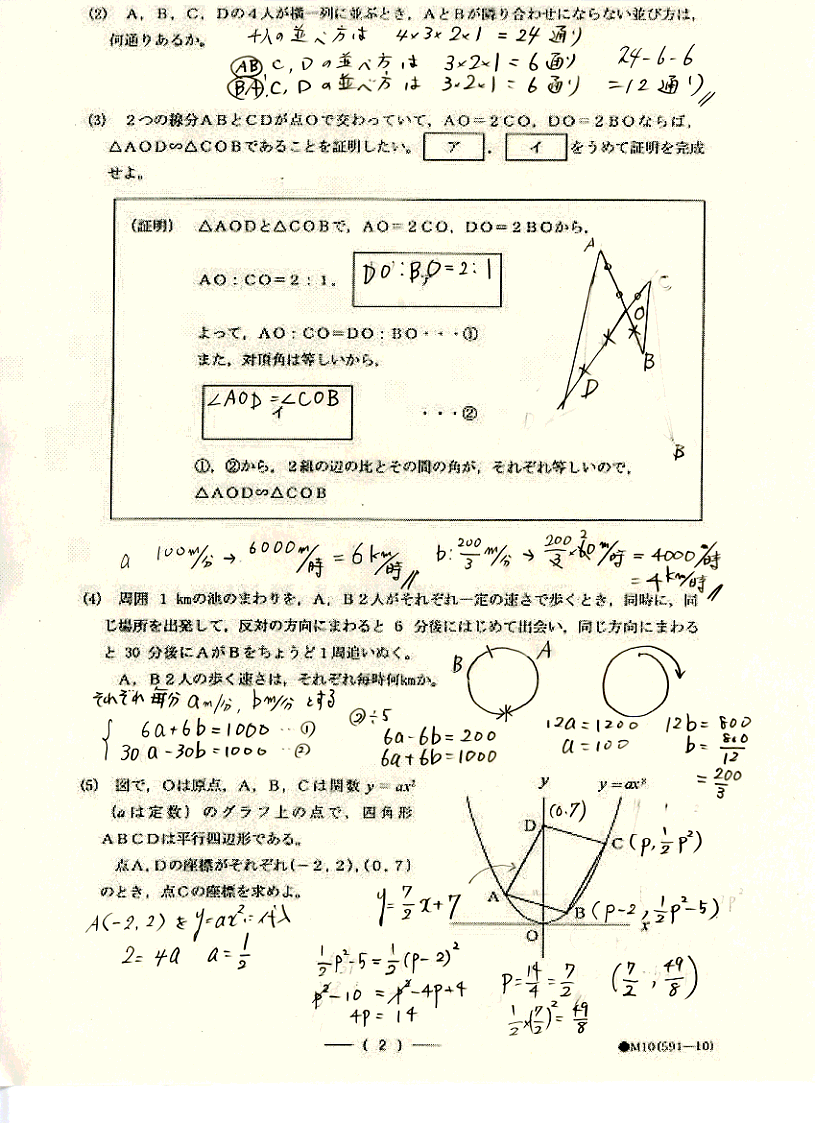 (2) A，B，C，Dの4人が横一列に並ぶとき，AとBが隣り合わせにならない並び方は，
何通りあるか。 4人の並べ方は 4×3×2×1 = 24通り
(AB), C, Dの並べ方は 3×2×1 = 6通り 24-6-6
(BA), C, Dの並べ方は 3×2×1 = 6通り =12通り//
(3) 2つの線分ABとCDが点Oで交わっていて，AO=2CO，DO=2BOならば，
△AOD∽△COBであることを証明したい。 ア ， イ をうめて証明を完成
せよ。
(証明) △AODと△COBで，AO=2CO，DO=2BOから，
AO：CO=2：1， DO：BO=2：1 ア
よって，AO：CO=DO：BO・・・①
また，対頂角は等しいから，
∠AOD=∠COB イ ・・・②
①，②から，2組の辺の比とその間の角が，それぞれ等しいので，
△AOD∽△COB
A
C
O
B
D
D
B
a 100m/分 → 6000m/時 = 6km/時// b: 200/3 m/分 → 200/3 × 60 m/時 = 4000m/時
2
= 4km/時//
(4) 周囲 1 kmの池のまわりを，A，B2人がそれぞれ一定の速さで歩くとき，同時に，同
じ場所を出発して，反対の方向にまわると 6 分後にはじめて出会い，同じ方向にまわる
と 30 分後にAがBをちょうど1周追いぬく。
A，B2人の歩く速さは，それぞれ毎時何kmか。
B A
それぞれ毎分 a m/分, b m/分 とする
6a+6b=1000 ‥①
30a-30b=1000 ‥②
②÷5
6a-6b=200
6a+6b=1000
12a=1200
a=100
12b=800
b=800/12
=200/3
(5) 図で，Oは原点，A，B，Cは関数 y=ax²
(aは定数) のグラフ上の点で，四角形
ABCDは平行四辺形である。
点A，Dの座標がそれぞれ(-2，2)，(0，7)
のとき，点Cの座標を求めよ。
y y=ax²
D (0.7)
C (p, 1/2 p²)
A
B (p-2, 1/2 p²-5)
O x
y=7/2 x+7
A(-2,2)を y=ax²に代入
2=4a a=1/2
1/2 p²-5=1/2 (p-2)²
p²-10 = p²-4p+4
4p = 14
p=14/4=7/2 (7/2, 49/8)
1/2×(7/2)²=49/8
— ( 2 ) —
●M10(591—10)